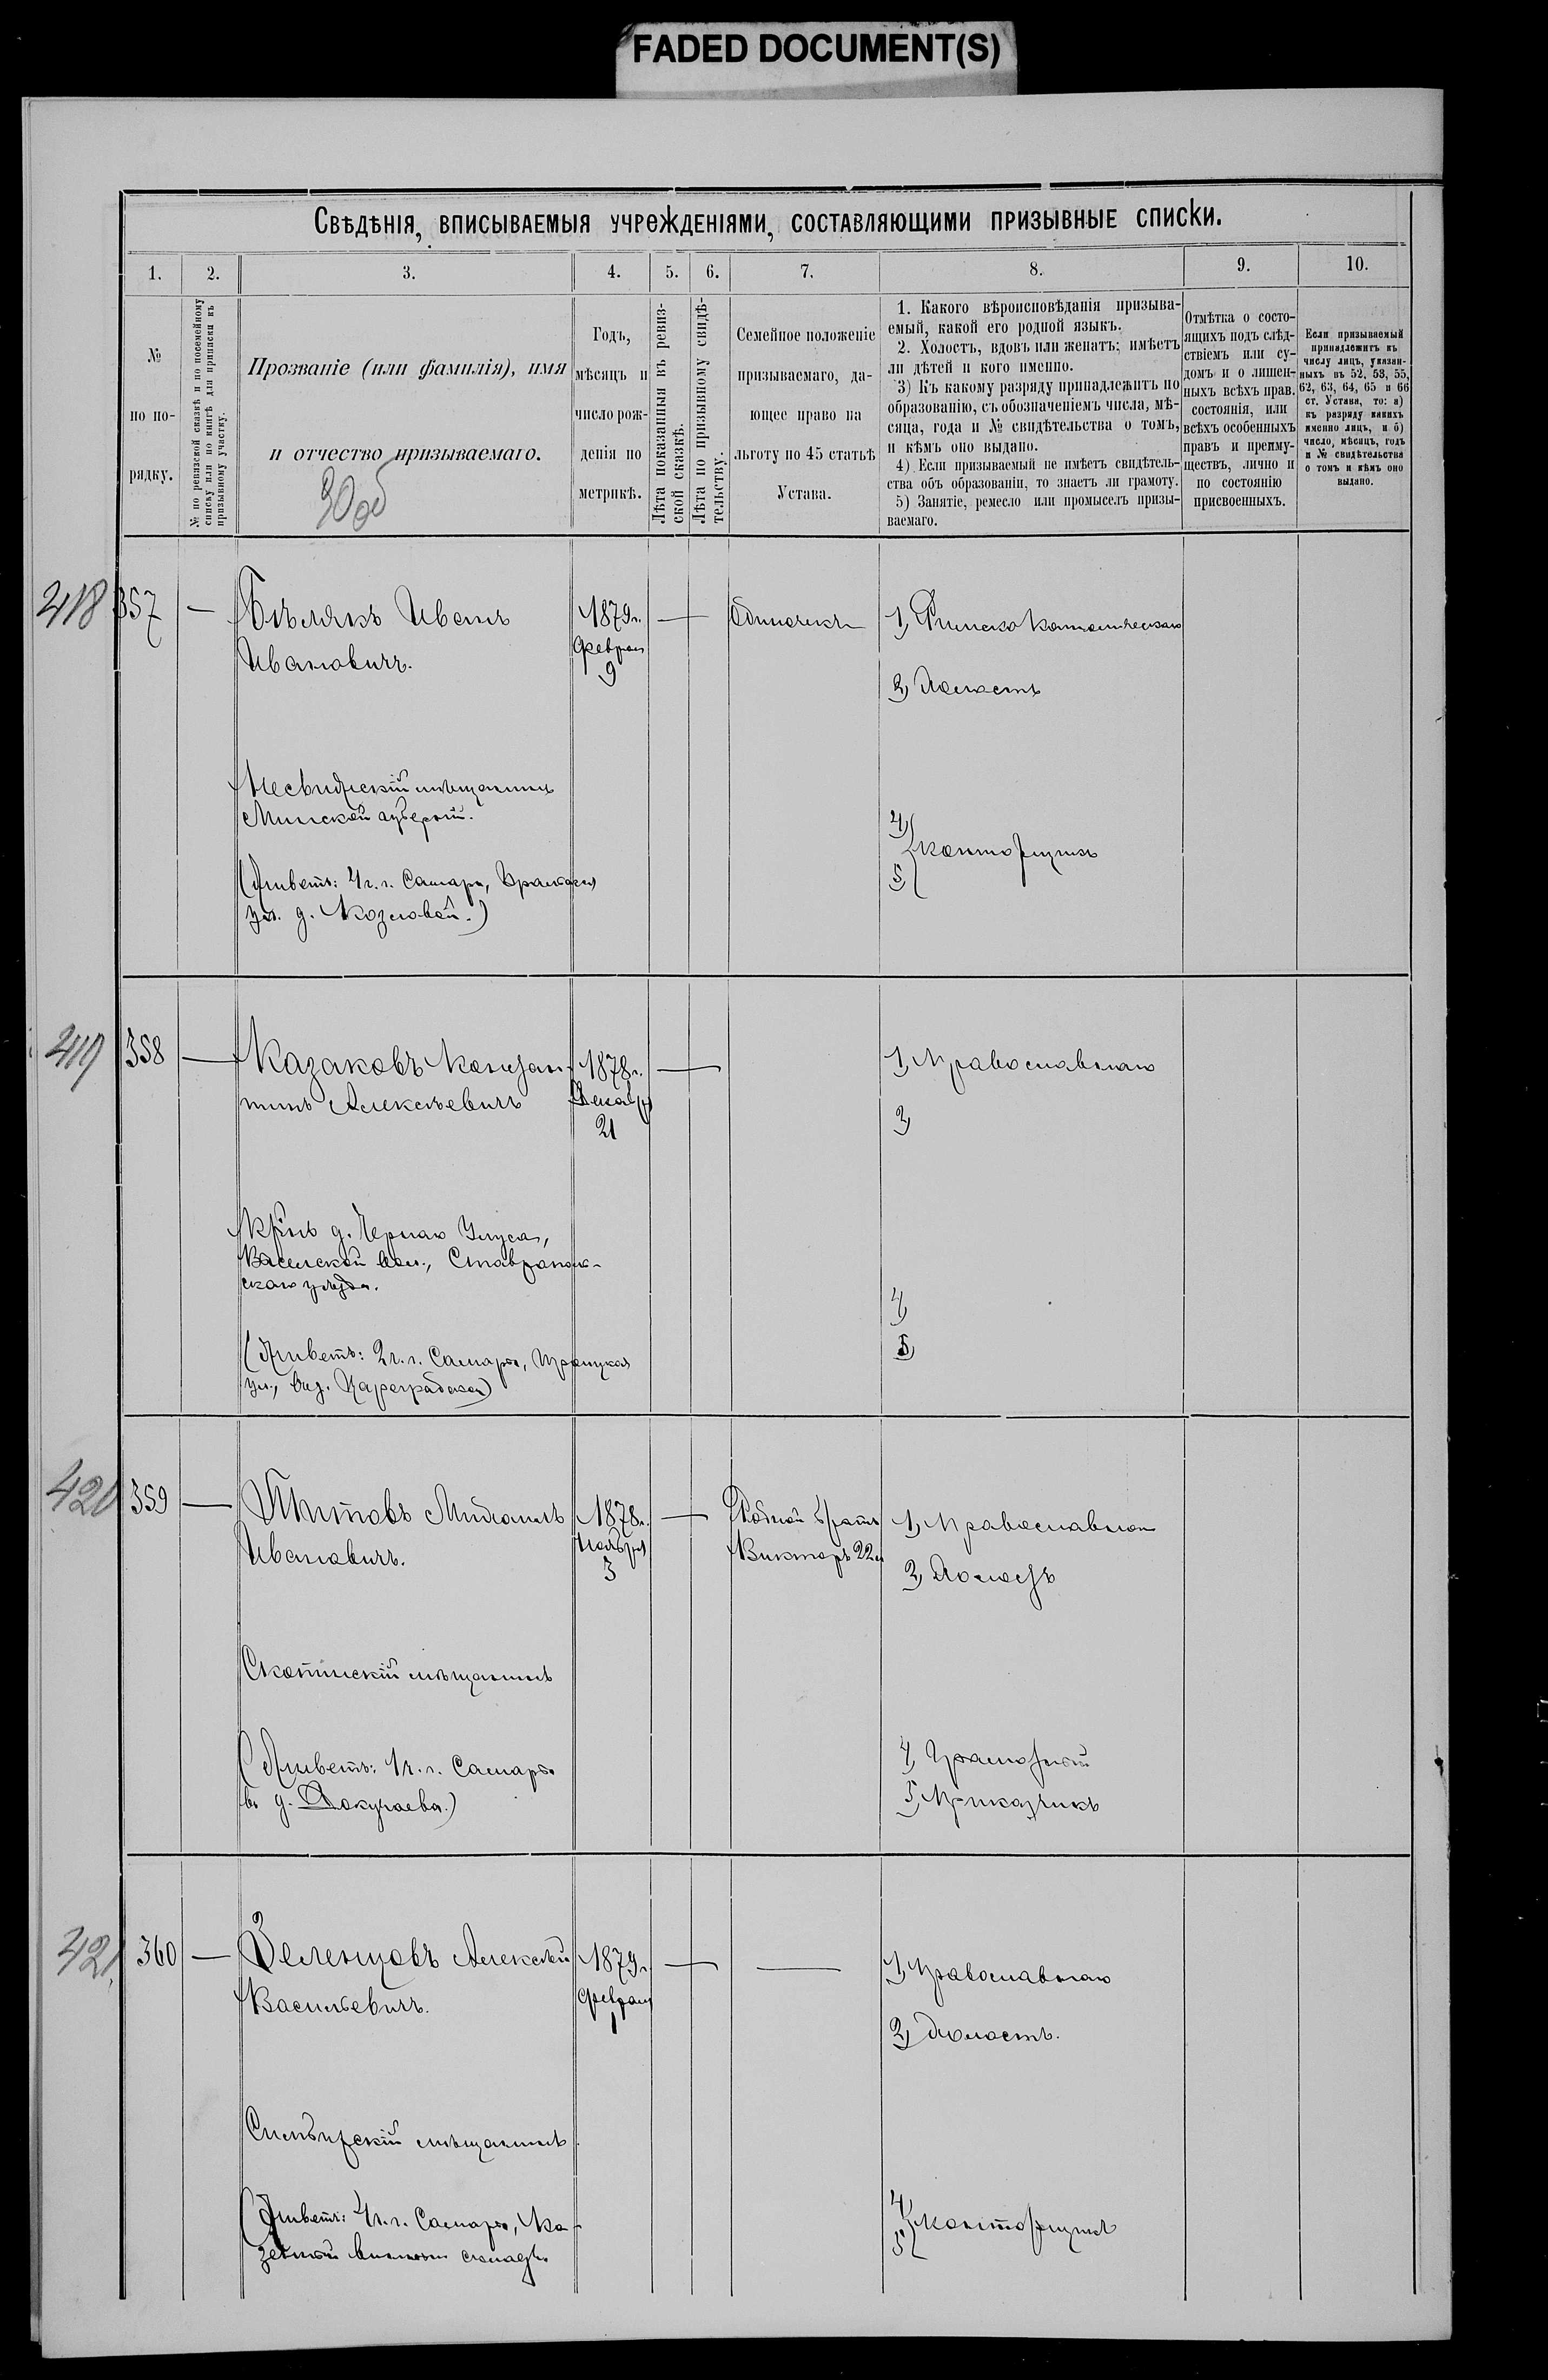 FADED DOCUMENT(S)
Свѣдѣнія, вписываемыя учрежденіями, составляющими призывные списки.
1. 2. 3. 4. 5. 6. 7. 8. 9. 10.
№
по по-
рядку.
№ по ревизской сказкѣ по посемейному
списку или по книгѣ для приписки къ
призывному участку.
Прозваніе (или фамилія), имя
и отчество призываемаго.
Годъ,
мѣсяцъ и
число рож-
денія по
метрикѣ.
Лѣта показанныя въ ревиз-
ской сказкѣ.
Лѣта по призывному свидѣ-
тельству.
Семейное положеніе
призываемаго, да-
ющее право на
льготу по 45 статьѣ
Устава.
1. Какого вѣроисповѣданія призыва-
емый, какой его родной языкъ.
2. Холостъ, вдовъ или женатъ; имѣетъ
ли дѣтей и кого именно.
3) Къ какому разряду принадлежитъ по
образованію, съ обозначеніемъ числа, мѣ-
сяца, года и № свидѣтельства о томъ,
и кѣмъ оно выдано.
4) Если призываемый не имѣетъ свидѣтель-
ства объ образованіи, то знаетъ ли грамоту.
5) Занятіе, ремесло или промыселъ призы-
ваемаго.
Отмѣтка о состо-
ящихъ подъ слѣд-
ствіемъ или су-
домъ и о лишен-
ныхъ всѣхъ прав.
состоянія, или
всѣхъ особенныхъ
правъ и преиму-
ществъ, лично и
по состоянію
присвоенныхъ.
Если призываемый
принадлежитъ къ
числу лицъ, указан-
ныхъ въ 52, 53, 55,
62, 63, 64, 65 и 66
ст. Устава, то: а)
къ разряду какихъ
именно лицъ, и б)
число, мѣсяцъ, годъ
и № свидѣтельства
о томъ и кѣмъ оно
выдано.
418 357 — Бѣлякъ Иванъ
Ивановичъ.
1879г.
Феврал
9
—
Одиночка
1, Римско Католическаго
2, Холостъ
Несвижскій мѣщанинъ
Минской губерніи.
(Живетъ: 4 ч. г. Самары,
ул. д. Козловой.)
4)
5) конторщикъ
419 358 — Казаковъ Констан-
тинъ Алексѣевичъ
1878г.
Декабр
21
—
1, Православнаго
2,
Кр-нъ д.
вол., Ставрополь-
скаго уѣзда.
(Живетъ: 2 ч. г. Самары, Троицкая
ул.,
4)
5)
420 359 — Титовъ Михаилъ
Ивановичъ.
1878г.
Ноября
3
—
Родной братъ
Викторъ 22л
1, Православнаго
2, Холостъ
Скопинскій мѣщанинъ
(Живетъ: 1 ч. г. Самары
въ д. Докучаева.)
4, Грамотный
5, Приказчикъ
421 360 — Зеленцовъ Алексѣй
Васильевичъ.
1879г.
Феврал
1
— —
1, Православнаго
2, Холостъ.
Симбирскій мѣщанинъ
(Живетъ: 4 ч. г. Самары, Ка-
зенный винный складъ
4)
5) конторщикъ